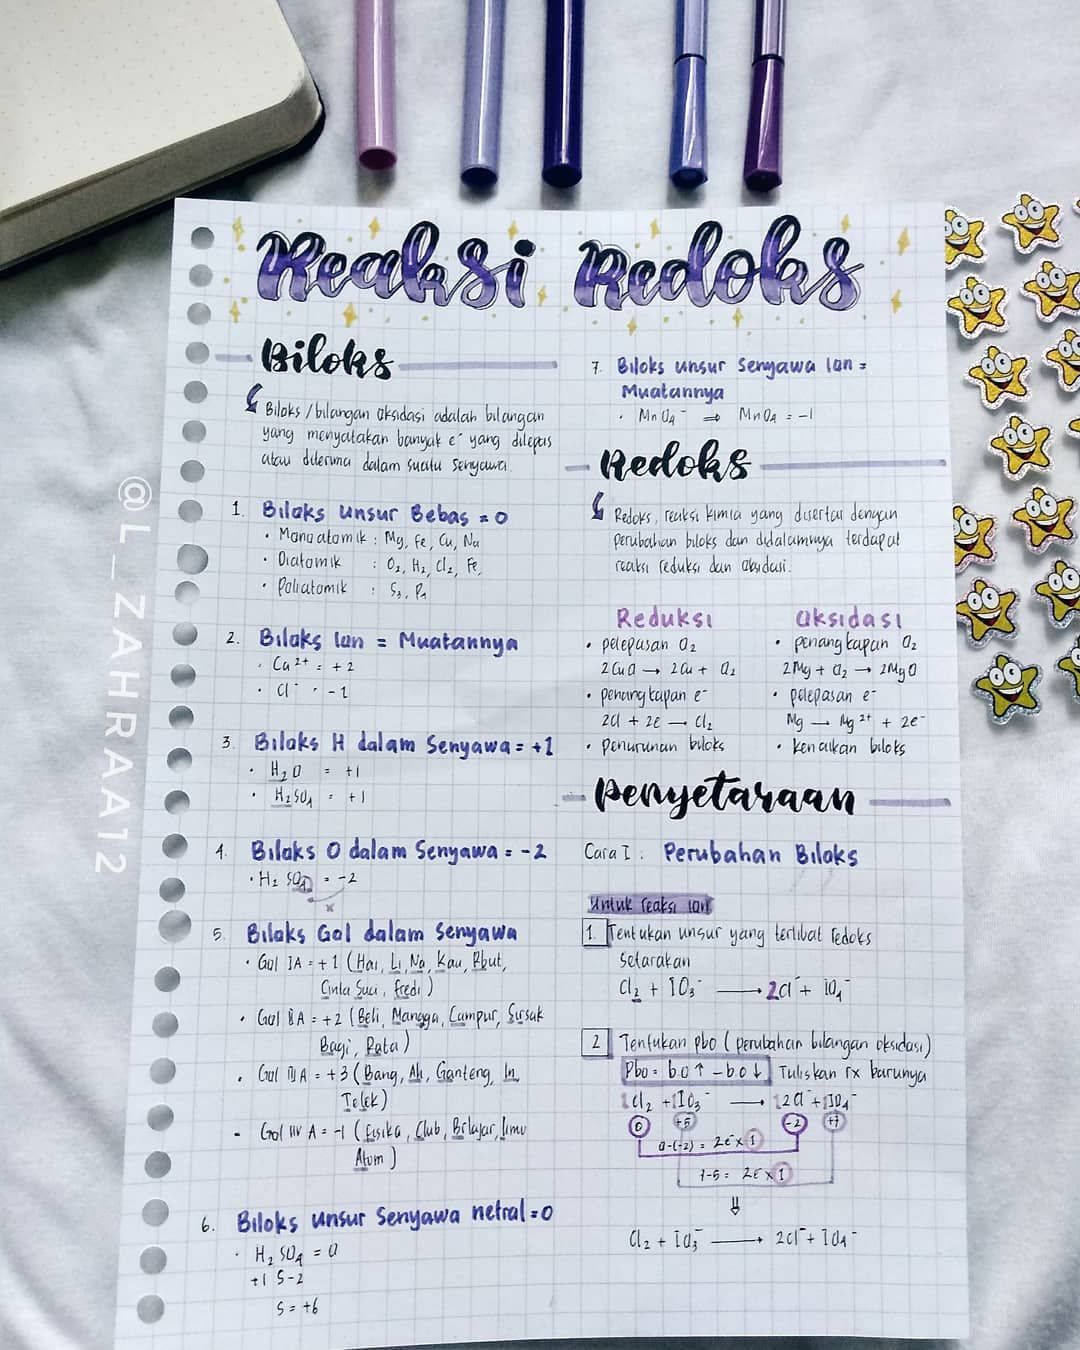 Reaksi Redoks
Biloks
Biloks/bilangan oksidasi adalah bilangan
yang menyatakan banyak e⁻ yang dilepas
atau diterima dalam suatu senyawa.
1. Biloks unsur Bebas = 0
• Monoatomik : Mg, Fe, Cu, Na
• Diatomik : O₂, H₂, Cl₂, Fe,
• Poliatomik : S₃, P₄
2. Biloks Ion = Muatannya
• Ca²⁺ = +2
• Cl⁻ • -1
3. Biloks H dalam Senyawa = +1
• H₂O = +1
• H₂SO₄ = +1
4. Biloks O dalam Senyawa = -2
• H₂SO₄ = -2
5. Biloks Gol dalam Senyawa
• Gol IA = +1 (Hai, Li, Na, Kau, Rbut,
Cinta Suci, Fredi)
• Gol IIA = +2 (Beli, Mangga, Campur, Susak
Bagi, Rata)
• Gol IIIA = +3 (Bang, Ali, Ganteng, In
Telek)
- Gol A = -1 (Fisika, Club, Brlajar, Ilmu
Atom)
6. Biloks unsur Senyawa netral = 0
• H₂SO₄ = 0
+1 S-2
S = +6
7. Biloks unsur Senyawa Ion =
Muatannya
• MnO₄⁻ ⇒ MnO₄ = -1
Redoks
Redoks, reaksi kimia yang disertai dengan
perubahan biloks dan didalamnya terdapat
reaksi reduksi dan oksidasi.
Reduksi Oksidasi
• pelepasan O₂ • penangkapan O₂
2CuO → 2Cu + O₂ 2Mg + O₂ → 2MgO
• penangkapan e⁻ • pelepasan e⁻
2Cl + 2e → Cl₂ Mg → Mg²⁺ + 2e⁻
• penurunan biloks • Kenaikan biloks
Penyetaraan
Cara I : Perubahan Biloks
Untuk reaksi ion
1. Tentukan unsur yang terlibat redoks
setarakan
Cl₂ + IO₃⁻ → 2Cl⁻ + IO₄⁻
2 Tentukan pbo (perubahan bilangan oksidasi)
Pbo = b.o↑ - b.o↓ Tuliskan rx barunya
1Cl₂ + 1IO₃⁻ → 1 2Cl⁻ + 1IO₄⁻
0 +5 -2 +7
0-(-2) = 2e⁻ x 1
7-5 = 2e x 1
⇓
Cl₂ + IO₃⁻ → 2Cl⁻ + IO₄⁻
@L_ZAHRAA12